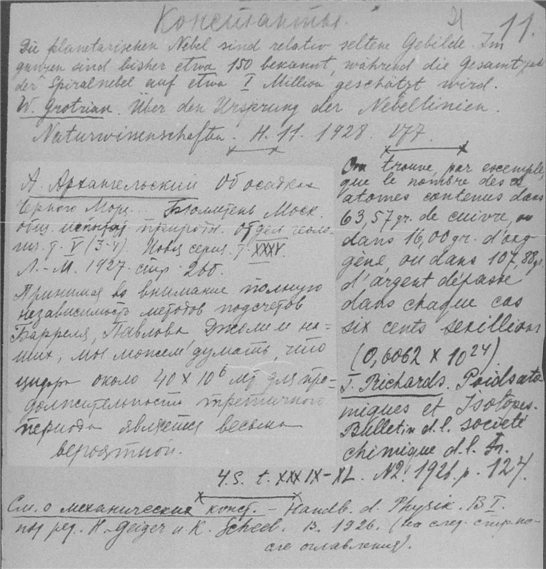 Константы.
11.
Die planetarischen Nebel sind relativ seltene Gebilde. Im
ganzen sind bisher etwa 150 bekannt, während die Gesamtzahl
der Spiralnebel auf etwa 1 Million geschätzt wird.
W. Grotrian. Über den Ursprung der Nebellinien.
Naturwissenschaften. H. 11. 1928. 177.
А. Архангельский Об осадках
Черного Моря. Бюллетень Моск.
общ. испыт. природы. Отдел геоло
гич. т. V (3-4) Новая серия. т. XXXV
Л.-М. 1927. стр. 260.
Принимая во внимание полную
независимость методов подсчетов
Барреля, Павлова, Джоли и на-
ших, мы можем думать, что
цифра около 40 × 10⁶ лет для про-
должительности третичного
периода является весьма
вероятной.
On trouve, par exemple,
que le nombre des
atomes contenus dans
63,57 gr. de cuivre, ou
dans 16,00 gr. d'oxy
gène, ou dans 107,88 gr.
d'argent dépasse
dans chaque cas
six cents sextillions
(0,6062 × 10²⁴)
T. Richards. Poids ato
miques et Isotopes.
Bulletin d. l. société
chimique d. l. Fr.
4 S. t. XXXIX-XL. N2. 1926. p. 127.
См. о механических конст. - Handb. d. Physik. B I.
под ред. H. Geiger и K. Scheel. B. 1926. (на след. стр. по-
сле оглавления).